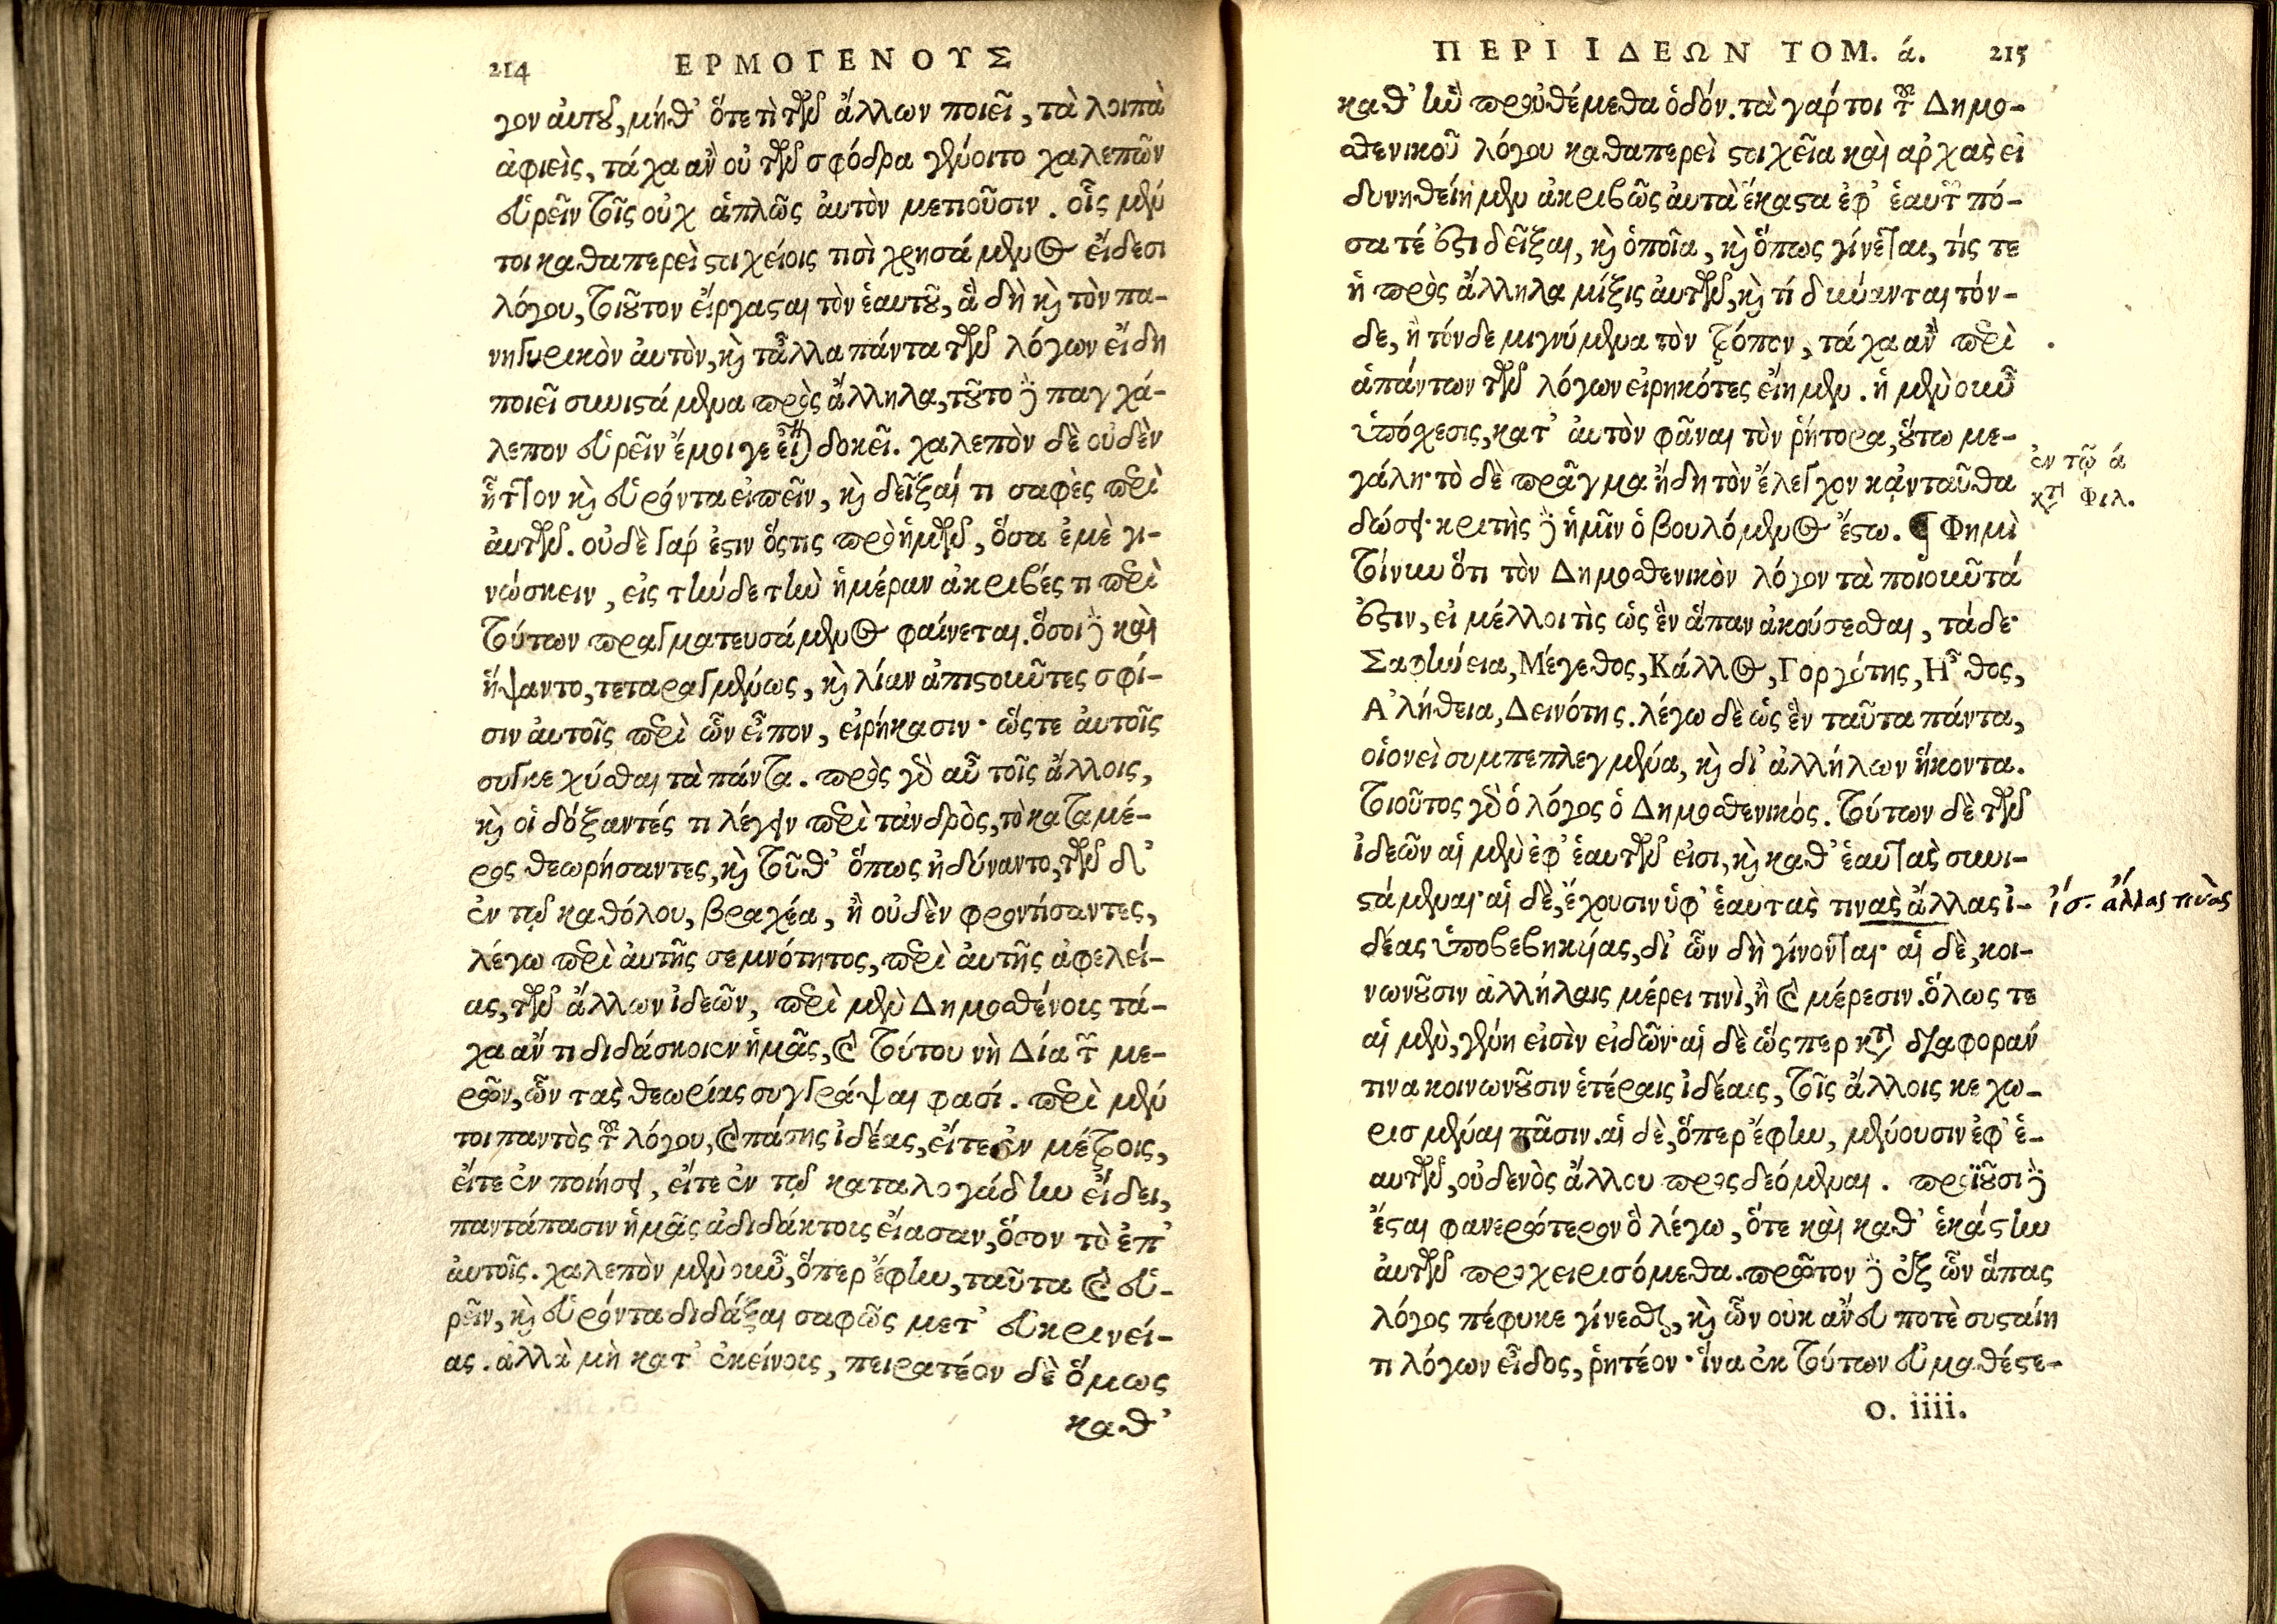 214 ΕΡΜΟΓΕΝΟΥΣ
γον αὐτοῦ, μήθ' ὅτε τὶ τῶν ἄλλων ποιεῖ, τὰ λοιπὰ
ἀφιεὶς, τάχα ἂν οὐ τῶν σφόδρα γένοιτο χαλεπῶν
εὑρεῖν τοῖς οὐχ ἁπλῶς αὐτὸν μετιοῦσιν. οἷς μέν
τοι καθαπερεὶ στιχείοις τισὶ χρησάμενος εἴδεσι
λόγου, τοιοῦτον εἴργασται τὸν ἑαυτοῦ, ἃ δὴ καὶ τὸν πα-
νηγυρικὸν αὐτὸν, καὶ τἆλλα πάντα τῶν λόγων εἴδη
ποιεῖ συνιστάμενα πρὸς ἄλληλα, τοῦτο δὲ παγχά-
λεπον εὑρεῖν ἔμοιγε εἶναι δοκεῖ. χαλεπὸν δὲ οὐδὲν
ἧττον καὶ εὑρόντα εἰπεῖν, καὶ δεῖξαί τι σαφὲς περὶ
αὐτῶν. οὐδὲ γάρ ἐστιν ὅστις πρὸ ἡμῶν, ὅσα ἐμὲ γι-
νώσκειν, εἰς τήνδε τὴν ἡμέραν ἀκριβές τι περὶ
τούτων πραγματευσάμενος φαίνεται. ὅσοι δὲ καὶ
ἥψαντο, τεταραγμένως, καὶ λίαν ἀπιστοῦντες σφί-
σιν αὐτοῖς περὶ ὧν εἶπον, εἰρήκασιν· ὥστε αὐτοῖς
συγκεχύσθαι τὰ πάντα. πρὸς γὰρ αὖ τοῖς ἄλλοις,
καὶ οἱ δόξαντές τι λέγειν περὶ τἀνδρὸς, τὸ κατα μέ-
ρος θεωρήσαντες, καὶ τοῦθ' ὅπως ἠδύναντο, τῶν δ'
ἐν τῷ καθόλου, βραχέα, ἢ οὐδὲν φροντίσαντες,
λέγω περὶ αὐτῆς σεμνότητος, περὶ αὐτῆς ἀφελεί-
ας, τῶν ἄλλων ἰδεῶν, περὶ μὲν Δημοσθένους τά-
χα ἄν τι διδάσκοιεν ἡμᾶς, καὶ τούτου νὴ Δία τῶν με-
ρῶν, ὧν τὰς θεωρίας συγγράψαι φασί. περὶ μέν
τοι παντὸς τοῦ λόγου, καὶ πάσης ἰδέας, εἴτε ἐν μέτροις,
εἴτε ἐν ποιήσει, εἴτε ἐν τῷ καταλογάδην εἴδει,
παντάπασιν ἡμᾶς ἀδιδάκτους εἴασαν, ὅσον τὸ ἐπ'
αὐτοῖς. χαλεπὸν μὲν οὖν, ὅπερ ἔφην, ταῦτα καὶ εὑ-
ρεῖν, καὶ εὑρόντα διδάξαι σαφῶς μετ' εὐκρινεί-
ας. ἀλλὰ μὴ κατ' ἐκείνους, πειρατέον δὲ ὅμως
καθ'
ΠΕΡΙ ΙΔΕΩΝ ΤΟΜ. ά. 215
καθ' ἣν προὐθέμεθα ὁδόν. τὰ γάρ τοι τοῦ Δημο-
σθενικοῦ λόγου καθαπερεὶ στιχεῖα καὶ ἀρχὰς εἰ
δυνηθείημεν ἀκριβῶς αὐτὰ ἕκαστα ἐφ' ἑαυτοῦ πό-
σα τέ ἐστι δεῖξαι, καὶ ὁποῖα, καὶ ὅπως γίνεται, τίς τε
ἡ πρὸς ἄλληλα μίξις αὐτῶν, καὶ τί δύνανται τόν-
δε, ἢ τόνδε μιγνύμενα τὸν τρόπον, τάχα ἂν περὶ
ἁπάντων τῶν λόγων εἰρηκότες εἴημεν. ἡ μὲν οὖν
ὑπόσχεσις, κατ' αὐτὸν φᾶναι τὸν ῥήτορα, οὕτω με-
γάλη· τὸ δὲ πρᾶγμα ἤδη τὸν ἔλεγχον κᾀνταῦθα
δώσει· κριτὴς δὲ ἡμῖν ὁ βουλόμενος ἔστω. ¶ Φημὶ
ἐν τῷ ά
κτ Φιλ.
τοίνυν ὅτι τὸν Δημοσθενικὸν λόγον τὰ ποιοῦντά
ἐστιν, εἰ μέλλοι τὶς ὡς ἓν ἅπαν ἀκούσεσθαι, τάδε·
Σαφήνεια, Μέγεθος, Κάλλος, Γοργότης, Ἦθος,
Ἀλήθεια, Δεινότης. λέγω δὲ ὡς ἓν ταῦτα πάντα,
οἱονεὶ συμπεπλεγμένα, καὶ δι' ἀλλήλων ἥκοντα.
τοιοῦτος γὰρ ὁ λόγος ὁ Δημοσθενικός. τούτων δὲ τῶν
ἰδεῶν αἱ μὲν ἐφ' ἑαυτῶν εἰσι, καὶ καθ' ἑαυτὰς συνι-
στάμεναι· αἱ δὲ, ἔχουσιν ὑφ' ἑαυτὰς τινὰς ἄλλας ἰ-
ἴσ. ἄλλας τινὰς
δέας ὑποβεβηκυίας, δι' ὧν δὴ γίνονται· αἱ δὲ, κοι-
νωνοῦσιν ἀλλήλαις μέρει τινὶ, ἢ καὶ μέρεσιν. ὅλως τε
αἱ μὲν, γένη εἰσὶν εἰδῶν· αἱ δὲ ὥσπερ κατὰ διαφοράν
τινα κοινωνοῦσιν ἑτέραις ἰδέαις, τοῖς ἄλλοις κεχω-
ρισμέναι πᾶσιν. αἱ δὲ, ὅπερ ἔφην, μένουσιν ἐφ' ἑ-
αυτῶν, οὐδενὸς ἄλλου προσδεόμεναι. προϊοῦσι δὲ
ἔσται φανερώτερον ὃ λέγω, ὅτε καὶ καθ' ἑκάστην
αὐτῶν προχειρισόμεθα. πρῶτον δὲ ἐξ ὧν ἅπας
λόγος πέφυκε γίνεσθαι, καὶ ὧν οὐκ ἄνευ ποτὲ συσταίη
τι λόγων εἶδος, ῥητέον· ἵνα ἐκ τούτων εὐμαθέστε-
O. iiii.